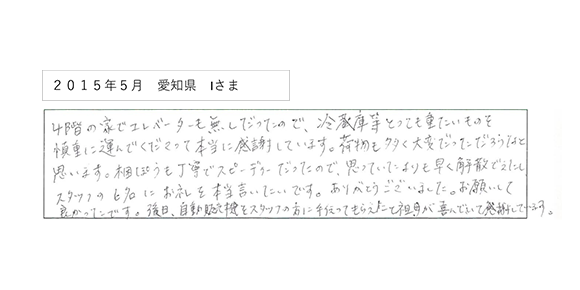 2015年5月　愛知県　Iさま
4階の家でエレベーターも無しだったので、冷蔵庫等とっても重たいものを
慎重に運んでくださって本当に感謝しています。荷物も多く大変だっただろうなと
思います。梱ぽうも丁寧でスピーディーだったので、思っていたよりも早く解散でえたし
スタッフの6名にお礼を本当言いたいです。ありがとうございました。お願いして
良かったです。後日、自動販売機をスタッフの方に手伝ってもらえたと祖母が喜んでいて感謝しています。